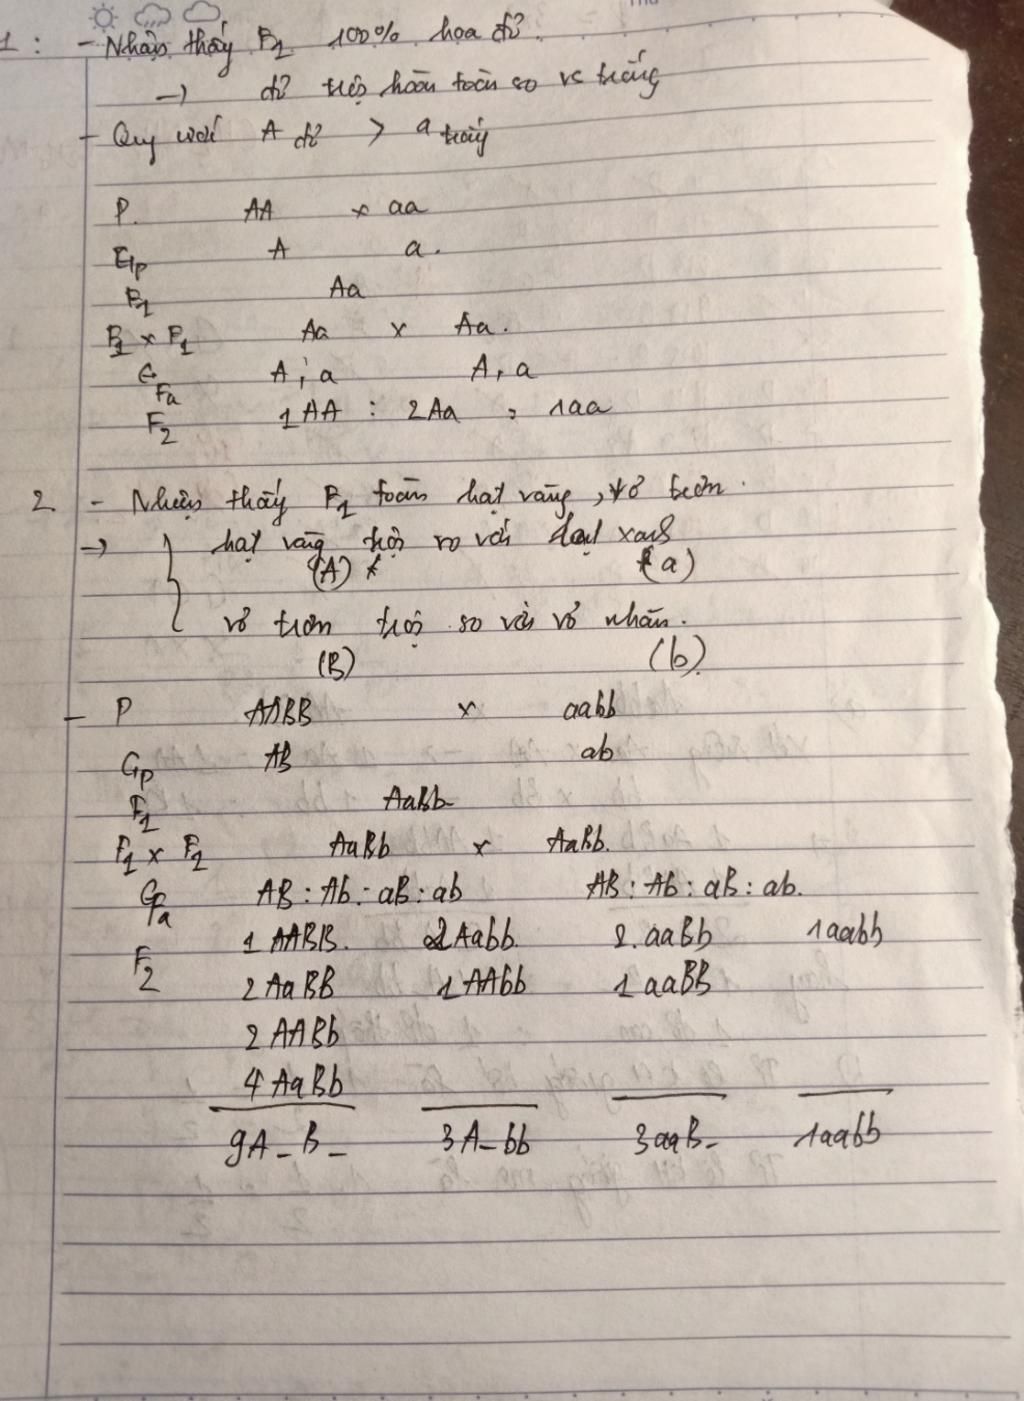 1: - Nhận thấy F1 100% hoa đỏ.
→ đỏ trội hoàn toàn so vs trắng
- Quy ước A đỏ > a trắng
P. AA x aa
GP A a.
F1 Aa
F1 x F1 Aa x Aa.
GF1 A, a A, a
F2 1AA : 2Aa : 1aa
2. - Nhận thấy F1 toàn hạt vàng, vỏ trơn.
→ { hạt vàng trội so với hạt xanh
(A) (a)
vỏ trơn trội so với vỏ nhăn.
(B) (b)
- P AABB x aabb
GP AB ab
F1 AaBb
F1 x F1 AaBb x AaBb.
GF1 AB : Ab : aB : ab AB : Ab : aB : ab.
F2 1 AABB. 2Aabb. 2. aaBb 1aabb
2 AaBB 1 AAbb 1 aaBB
2 AABb
4 AaBb
9A-B- 3A-bb 3aaB- 1aabb